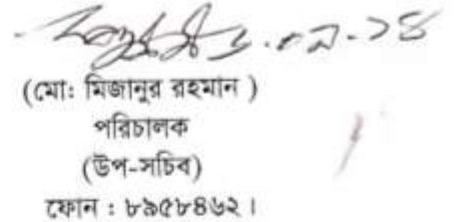 (মো: মিজানুর রহমান )
পরিচালক
(উপ-সচিব)
ফোন : ৮৯৫৮৪৬২।